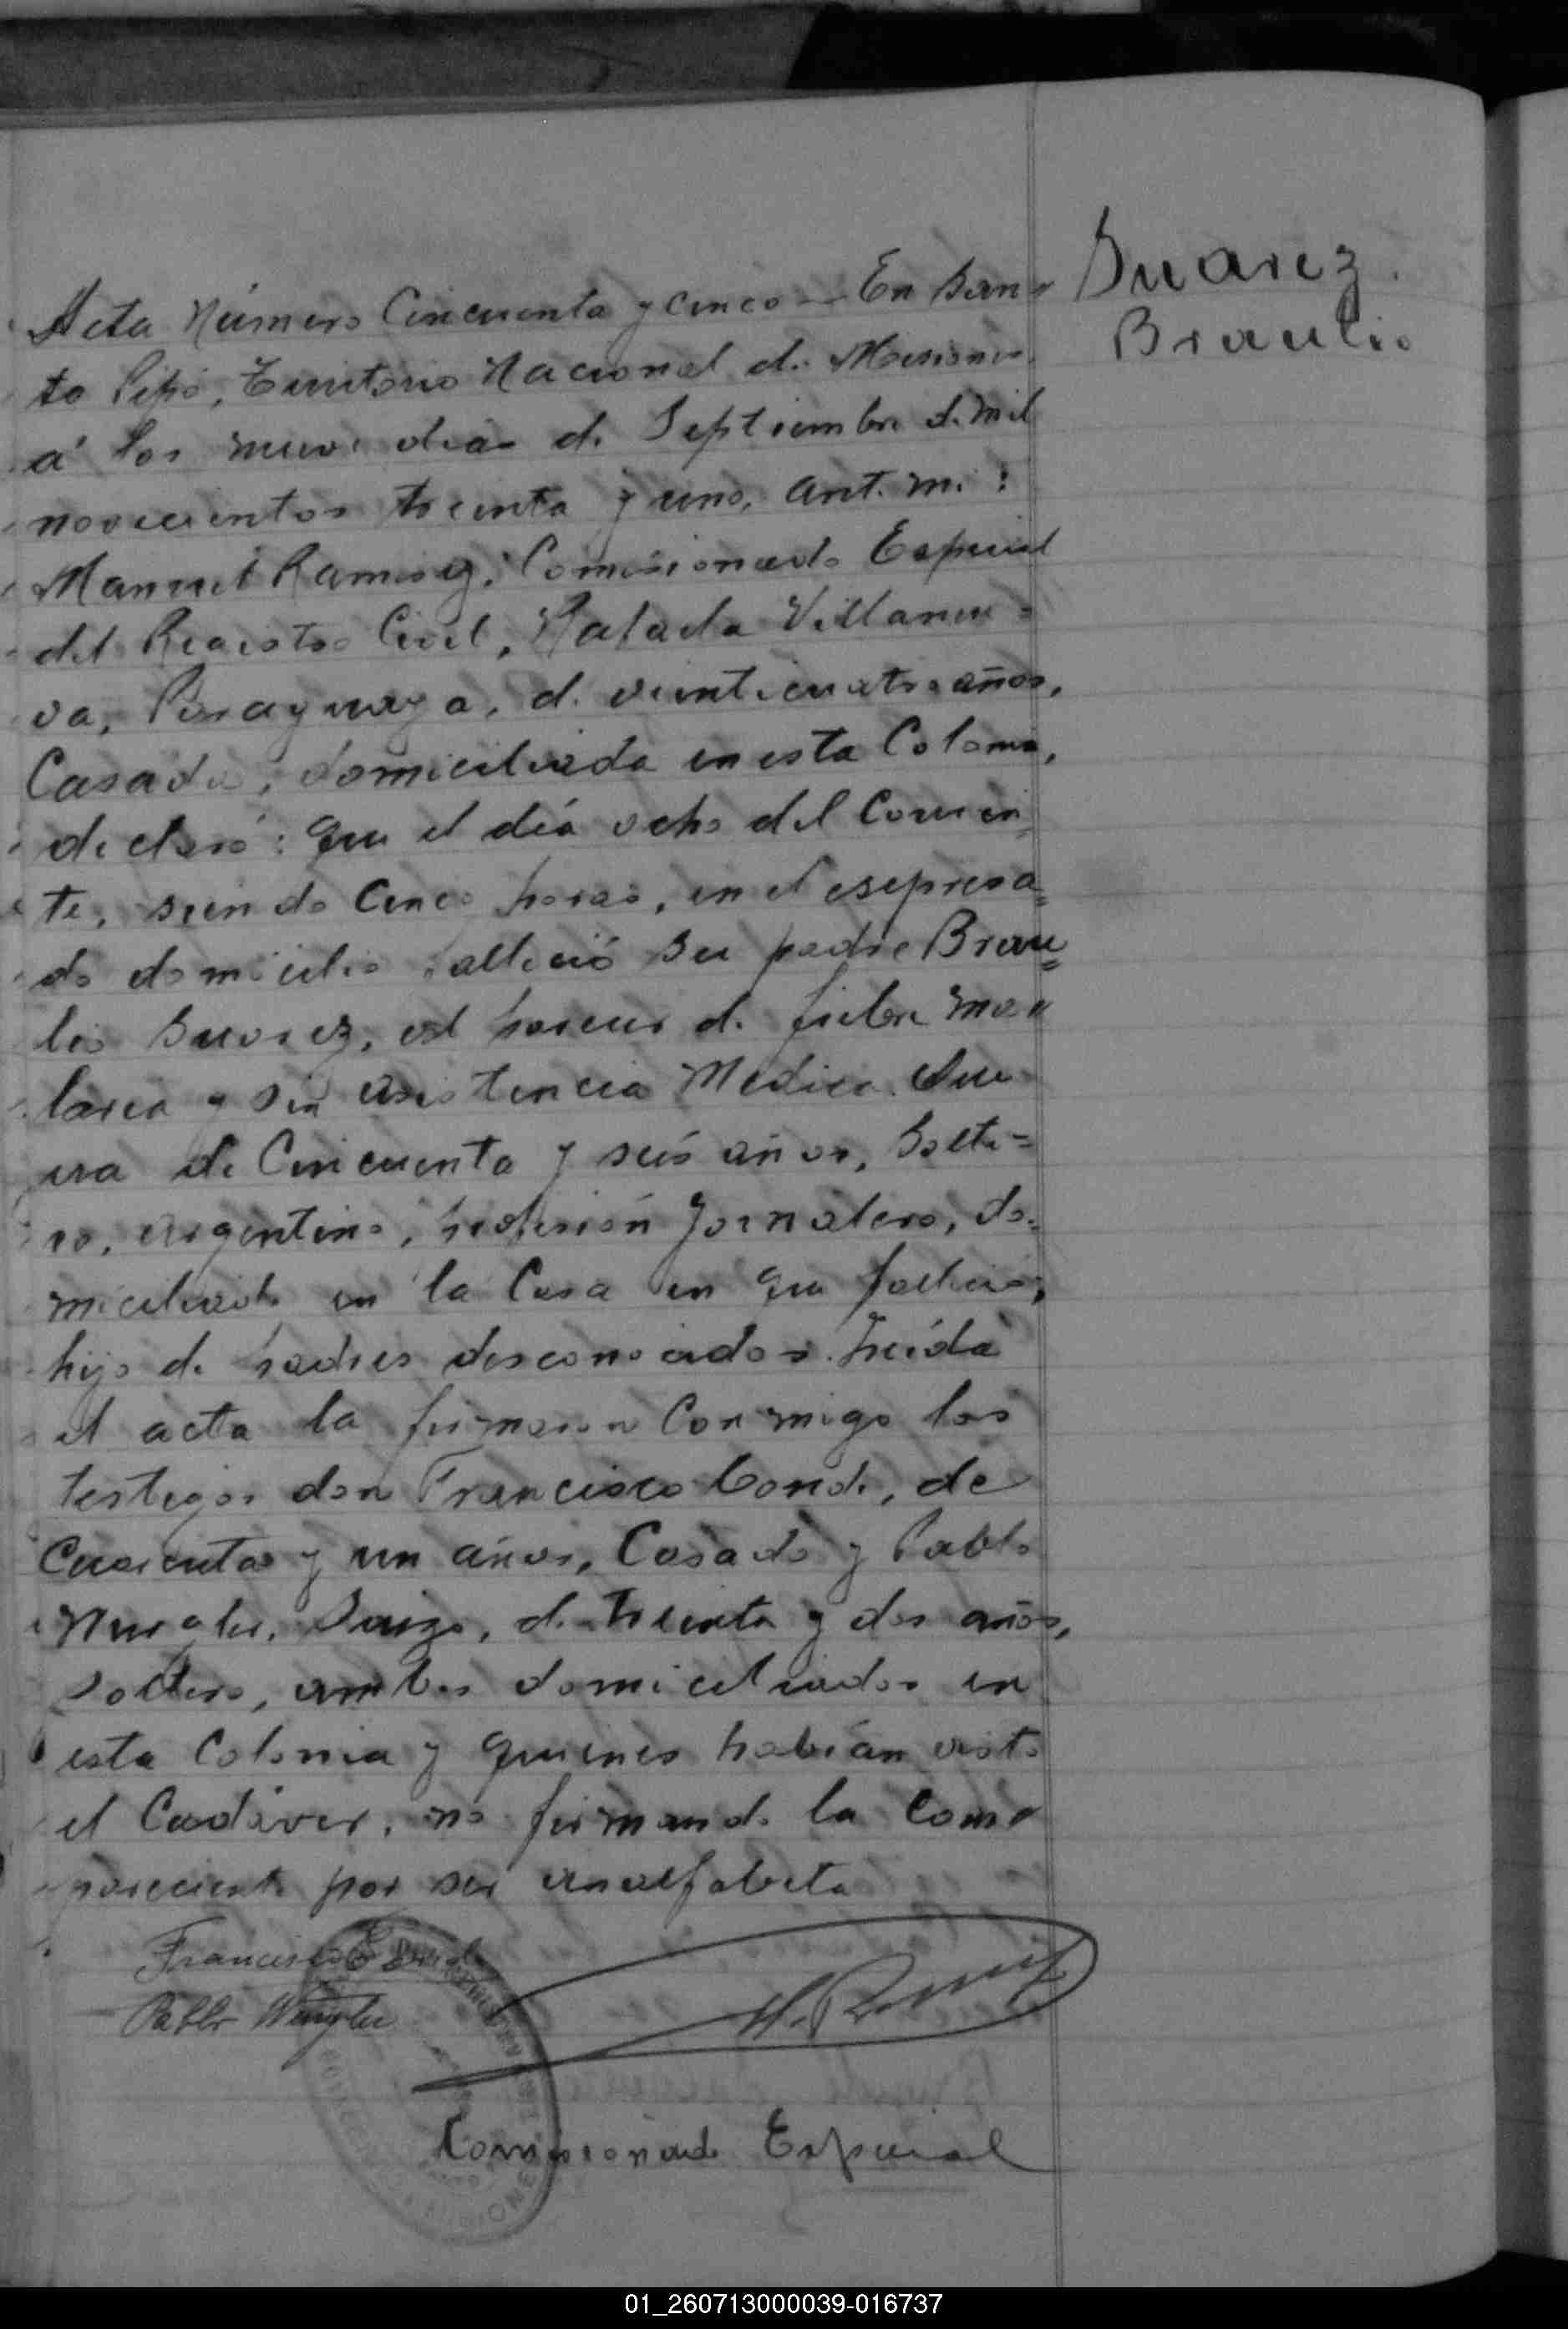 Suarez
Braulio
Acta Número Cincuenta y cinco — En San-
to Pipó, Territorio Nacional de Misiones
á los nueve dias de Septiembre de mil
novecientos treinta y uno, ante mi:
Manuel Ramirez, Comisionado Especial
del Registro Civil, Villanue=
va, Paraguaya, de veinticuatro años,
Casada, domiciliada en esta Colonia,
declaró: Que el día ocho del Corrien
te, siendo Cinco horas, en el esepresa=
do domicilio falleció su padre Brau=
lio Suarez, al parecer de fiebre ma"
larea y sin asistencia Medica. Que
era de Cincuenta y seis años, Solte=
ro, argentino, profesión Jornalero, do=
miciliado en la Casa en que falleció,
hijo de padres desconocidos. Leída
el acta la firmaron Conmigo los
testigos don Francisco Conde, de
Cuarenta y un años, Casado y Pablo
Suizo, de treinta y dos años,
soltero, ambos domiciliados en
esta Colonia y quienes habían visto
el Cadáver, no firmando la Com"
pareciente por ser analfabeta
Francisco
Pablo
Comisionado Especial
01_260713000039-016737